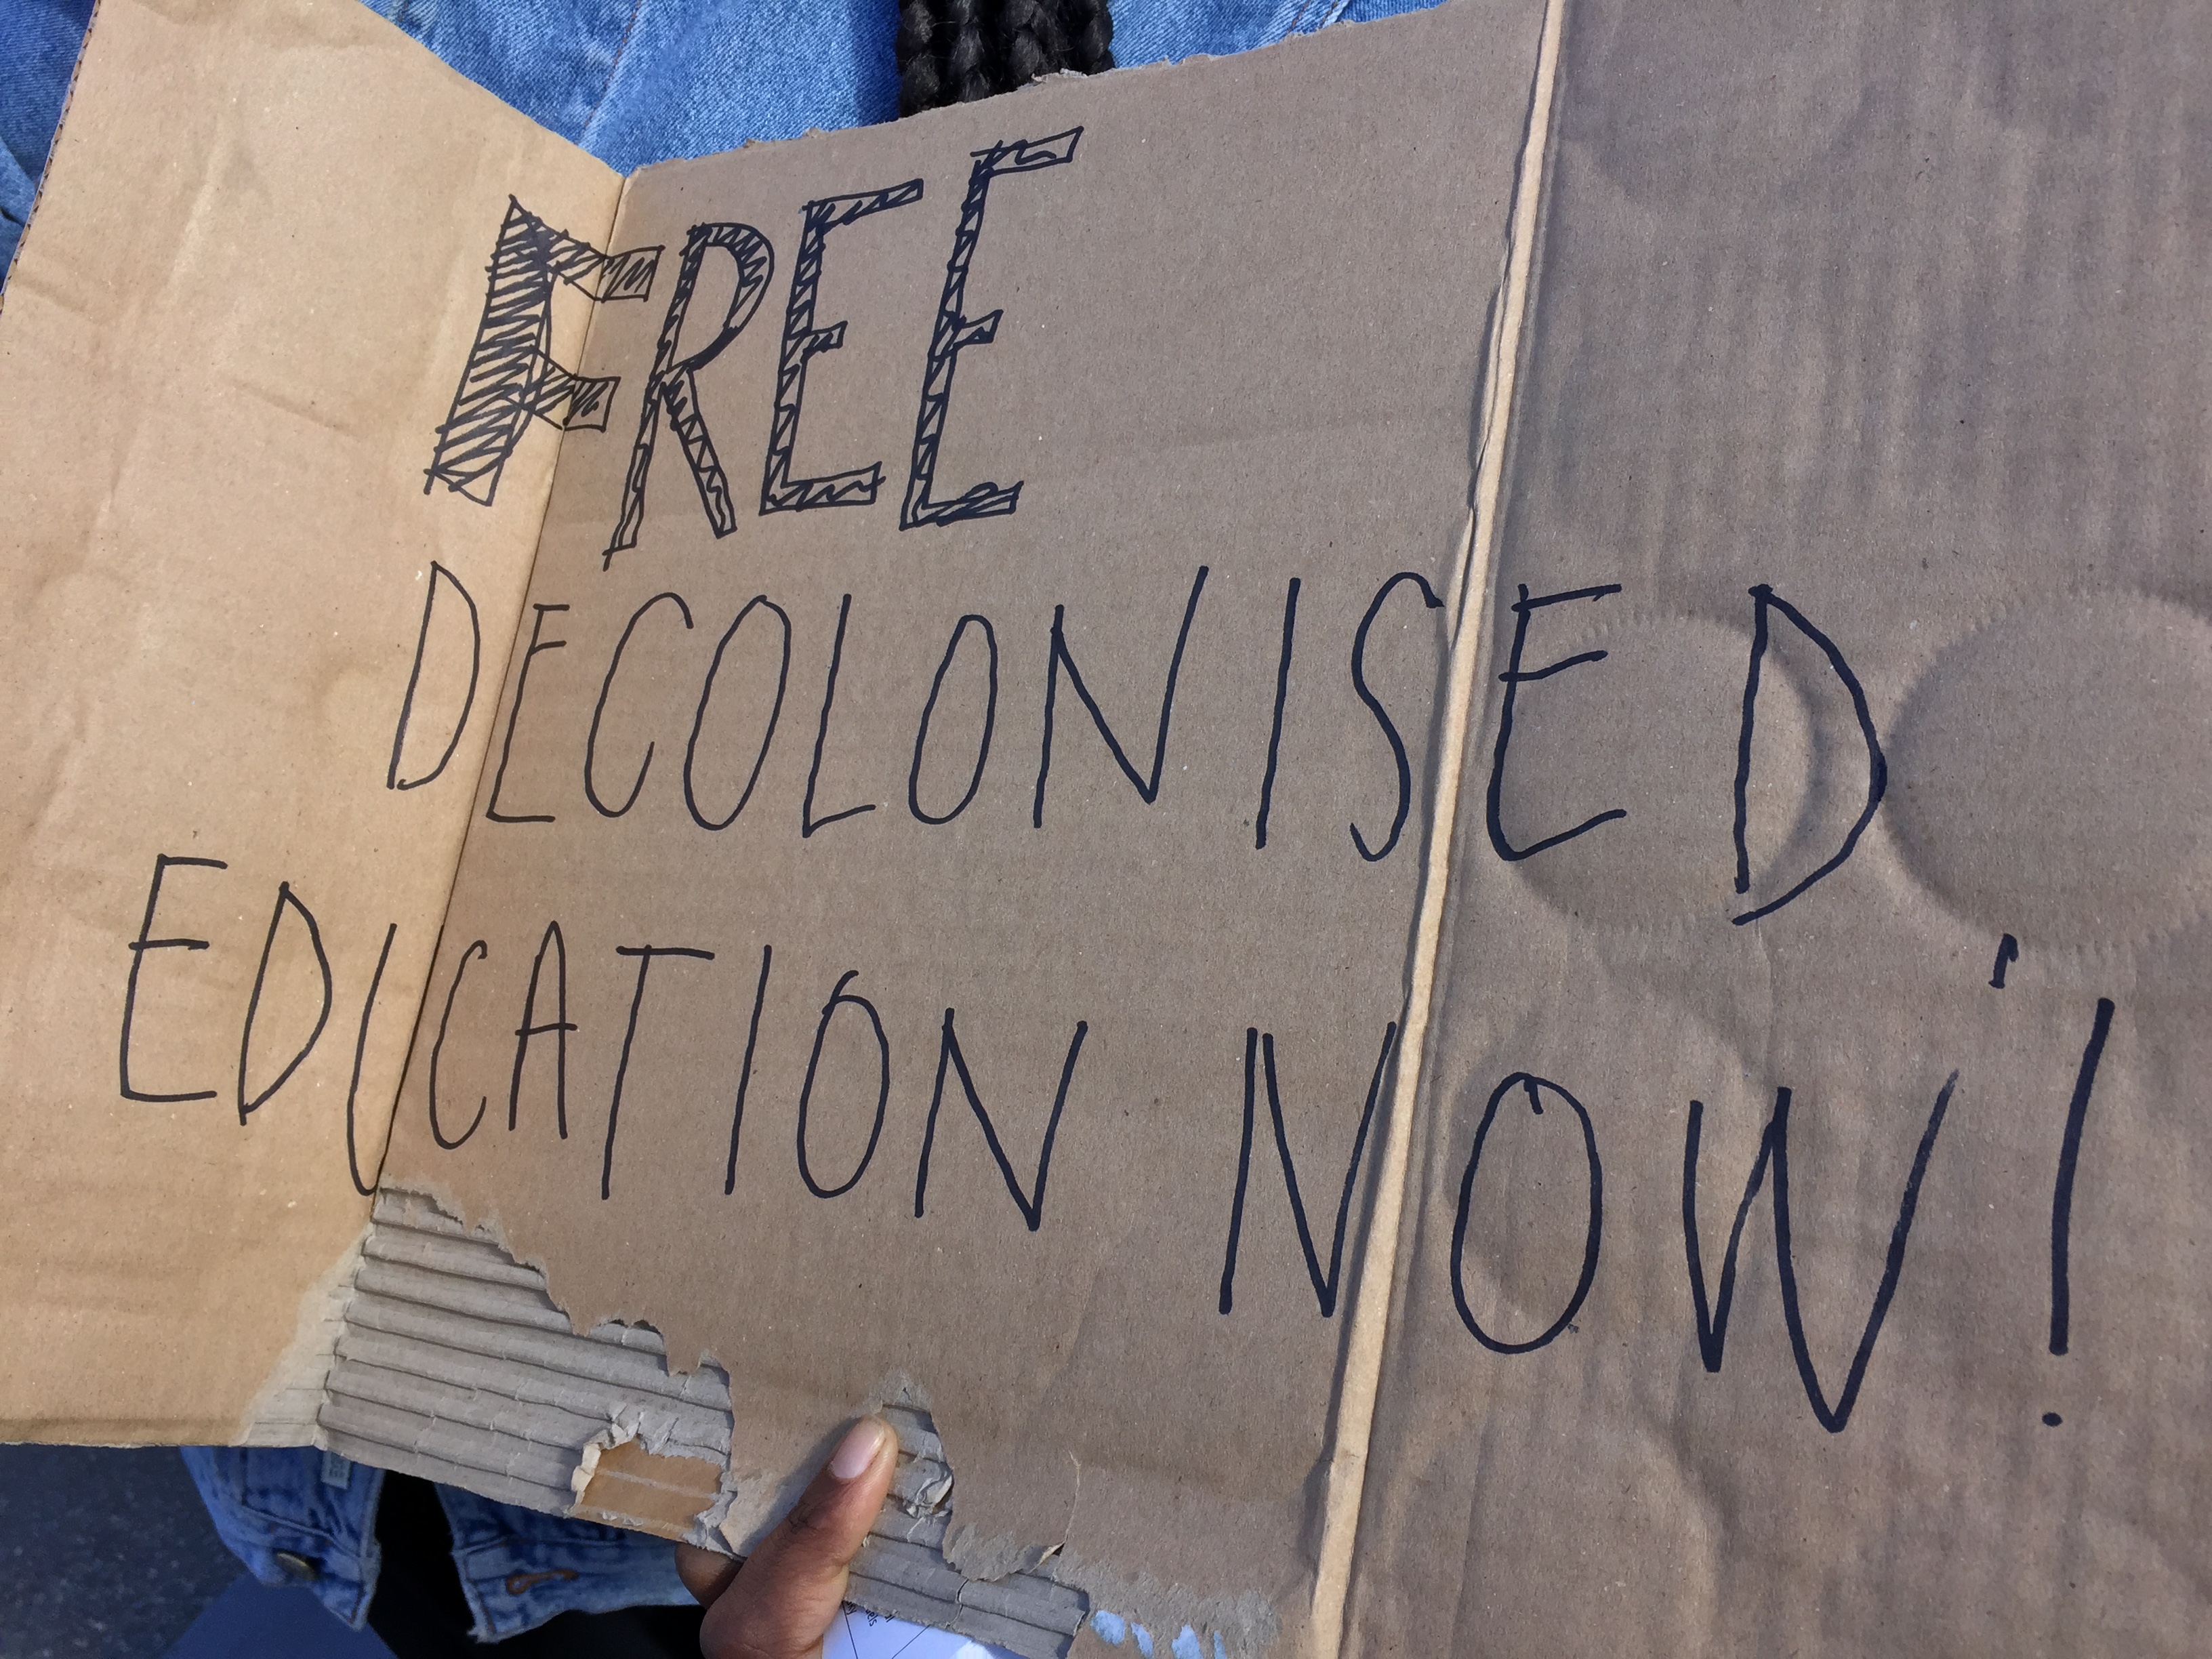 FREE
DECOLONISED
EDUCATION NOW!